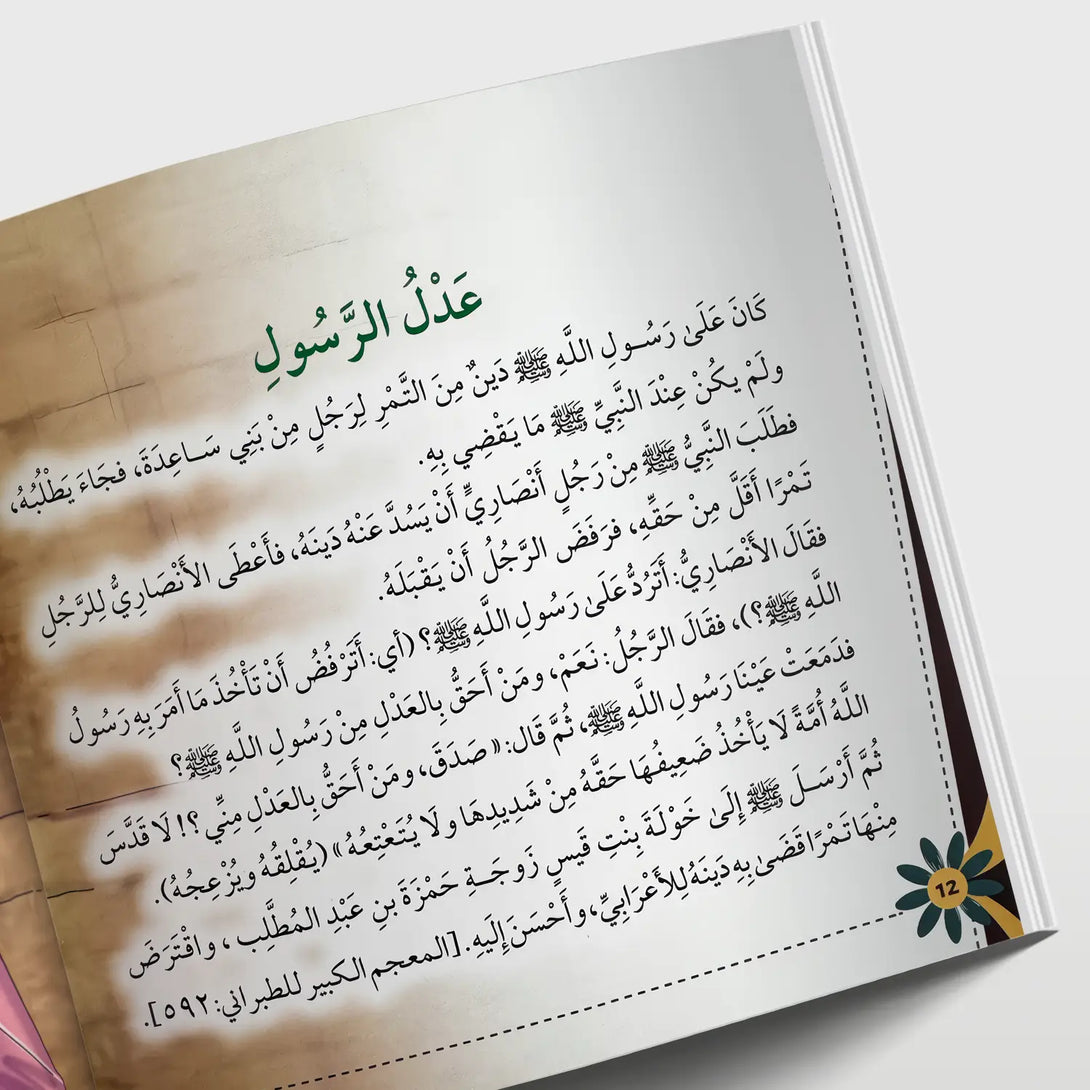 عَدْلُ الرَّسُولِ
كَانَ عَلَىٰ رَسُولِ اللَّهِ ﷺ دَينٌ مِنَ التَّمْرِ لِرَجُلٍ مِنْ بَنِي سَاعِدَةَ، فجَاءَ يَطْلُبُهُ،
ولَمْ يكُنْ عِنْدَ النَّبِيِّ ﷺ مَا يَقْضِي بِهِ.
فطَلَبَ النَّبِيُّ ﷺ مِنْ رَجُلٍ أَنْصَارِيٍّ أَنْ يَسُدَّ عَنْهُ دَينَهُ، فأَعْطَى الأَنْصَارِيُّ لِلرَّجُلِ
تَمْرًا أَقَلَّ مِنْ حَقِّهِ، فرَفَضَ الرَّجُلُ أَنْ يَقْبَلَهُ.
فقَالَ الأَنْصَارِيُّ: أَتَرُدُّ عَلَىٰ رَسُولِ اللَّهِ ﷺ؟ (أي: أَتَرْفُضُ أَنْ تَأْخُذَ مَا أَمَرَ بِهِ رَسُولُ
اللَّهِ ﷺ؟)، فقَالَ الرَّجُلُ: نَعَمْ، ومَنْ أَحَقُّ بِالعَدْلِ مِنْ رَسُولِ اللَّهِ ﷺ؟
فدَمَعَتْ عَيْنَا رَسُولِ اللَّهِ ﷺ، ثُمَّ قَال: «صَدَقَ، ومَنْ أَحَقُّ بِالعَدْلِ مِنِّي؟! لَا قَدَّسَ
اللَّهُ أُمَّةً لَا يَأْخُذُ ضَعِيفُهَا حَقَّهُ مِنْ شَدِيدِهَا ولَا يُتَعْتِعُهُ» (يُقْلِقُهُ ويُزْعِجُهُ).
ثُمَّ أَرْسَلَ ﷺ إِلَىٰ خَوْلَةَ بِنْتِ قَيسٍ زَوجَةِ حَمْزَةَ بنِ عَبْدِ المُطَّلِب، واقْتَرَضَ
مِنْهَا تَمْرًا قَضَىٰ بِهِ دَينَهُ لِلأَعْرَابِيِّ، وأَحْسَنَ إِلَيهِ. [المعجم الكبير للطبراني: ٥٩٢].
12